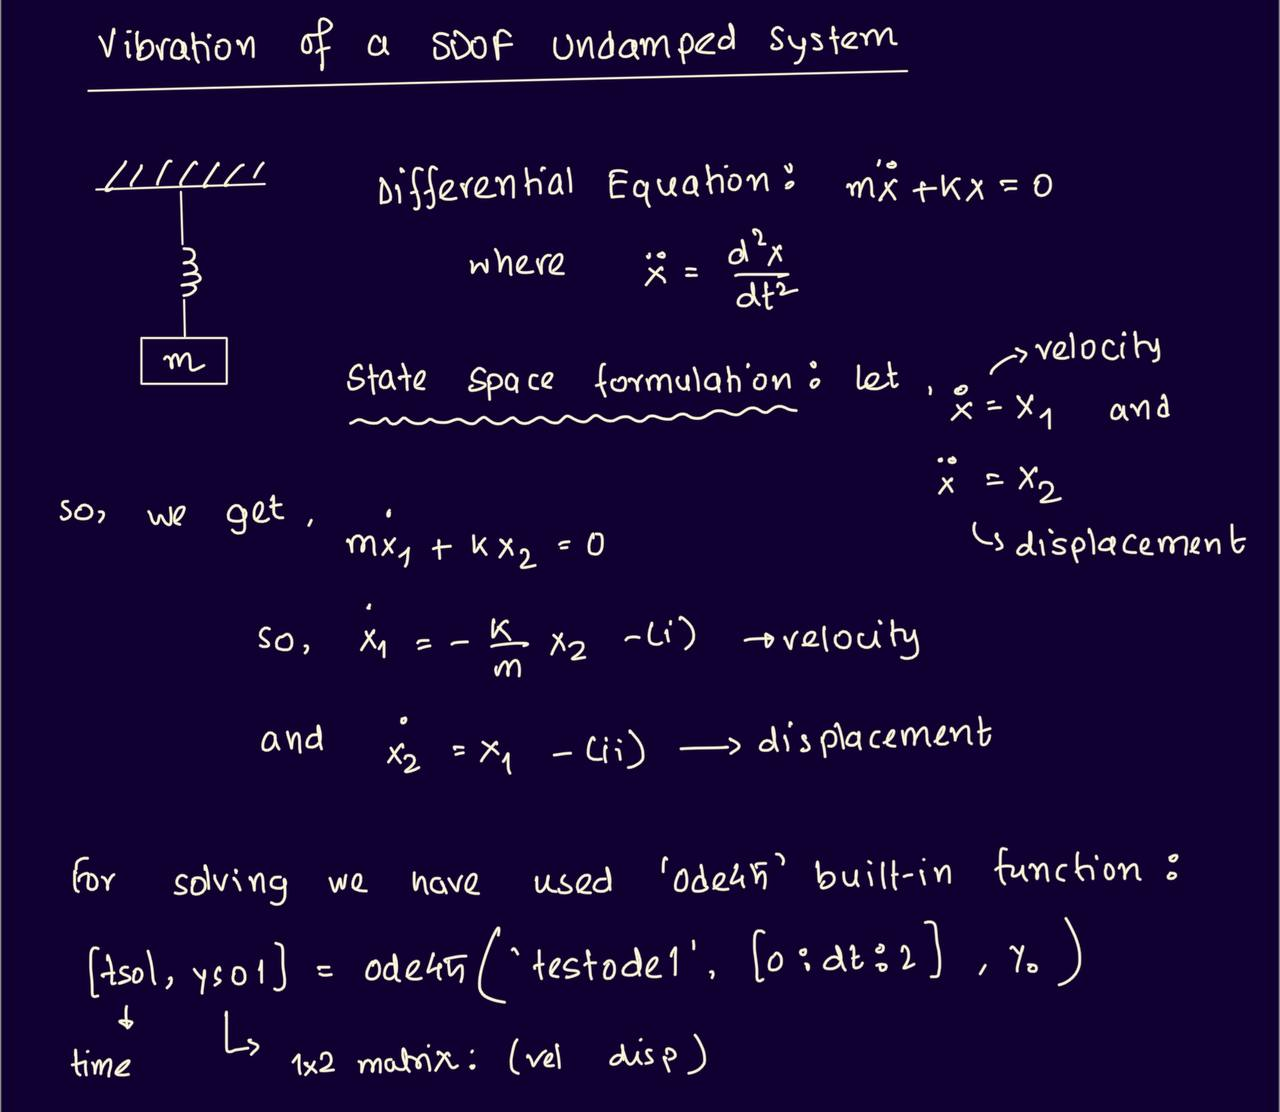 Vibration of a SDOF undamped System
Differential Equation: mẍ + kx = 0
where ẍ = d²x/dt²
m
→ velocity
State space formulation: let, ẋ = x₁ and
ẍ = x₂
↳ displacement
so, we get, mẋ₁ + kx₂ = 0
so, ẋ₁ = - k/m x₂ -(i) → velocity
and ẋ₂ = x₁ - (ii) → displacement
For solving we have used 'ode45' built-in function:
[tsol, ysol] = ode45('testode1', [0:dt:2], Y₀)
↓ ↳
time 1x2 matrix: (vel disp)